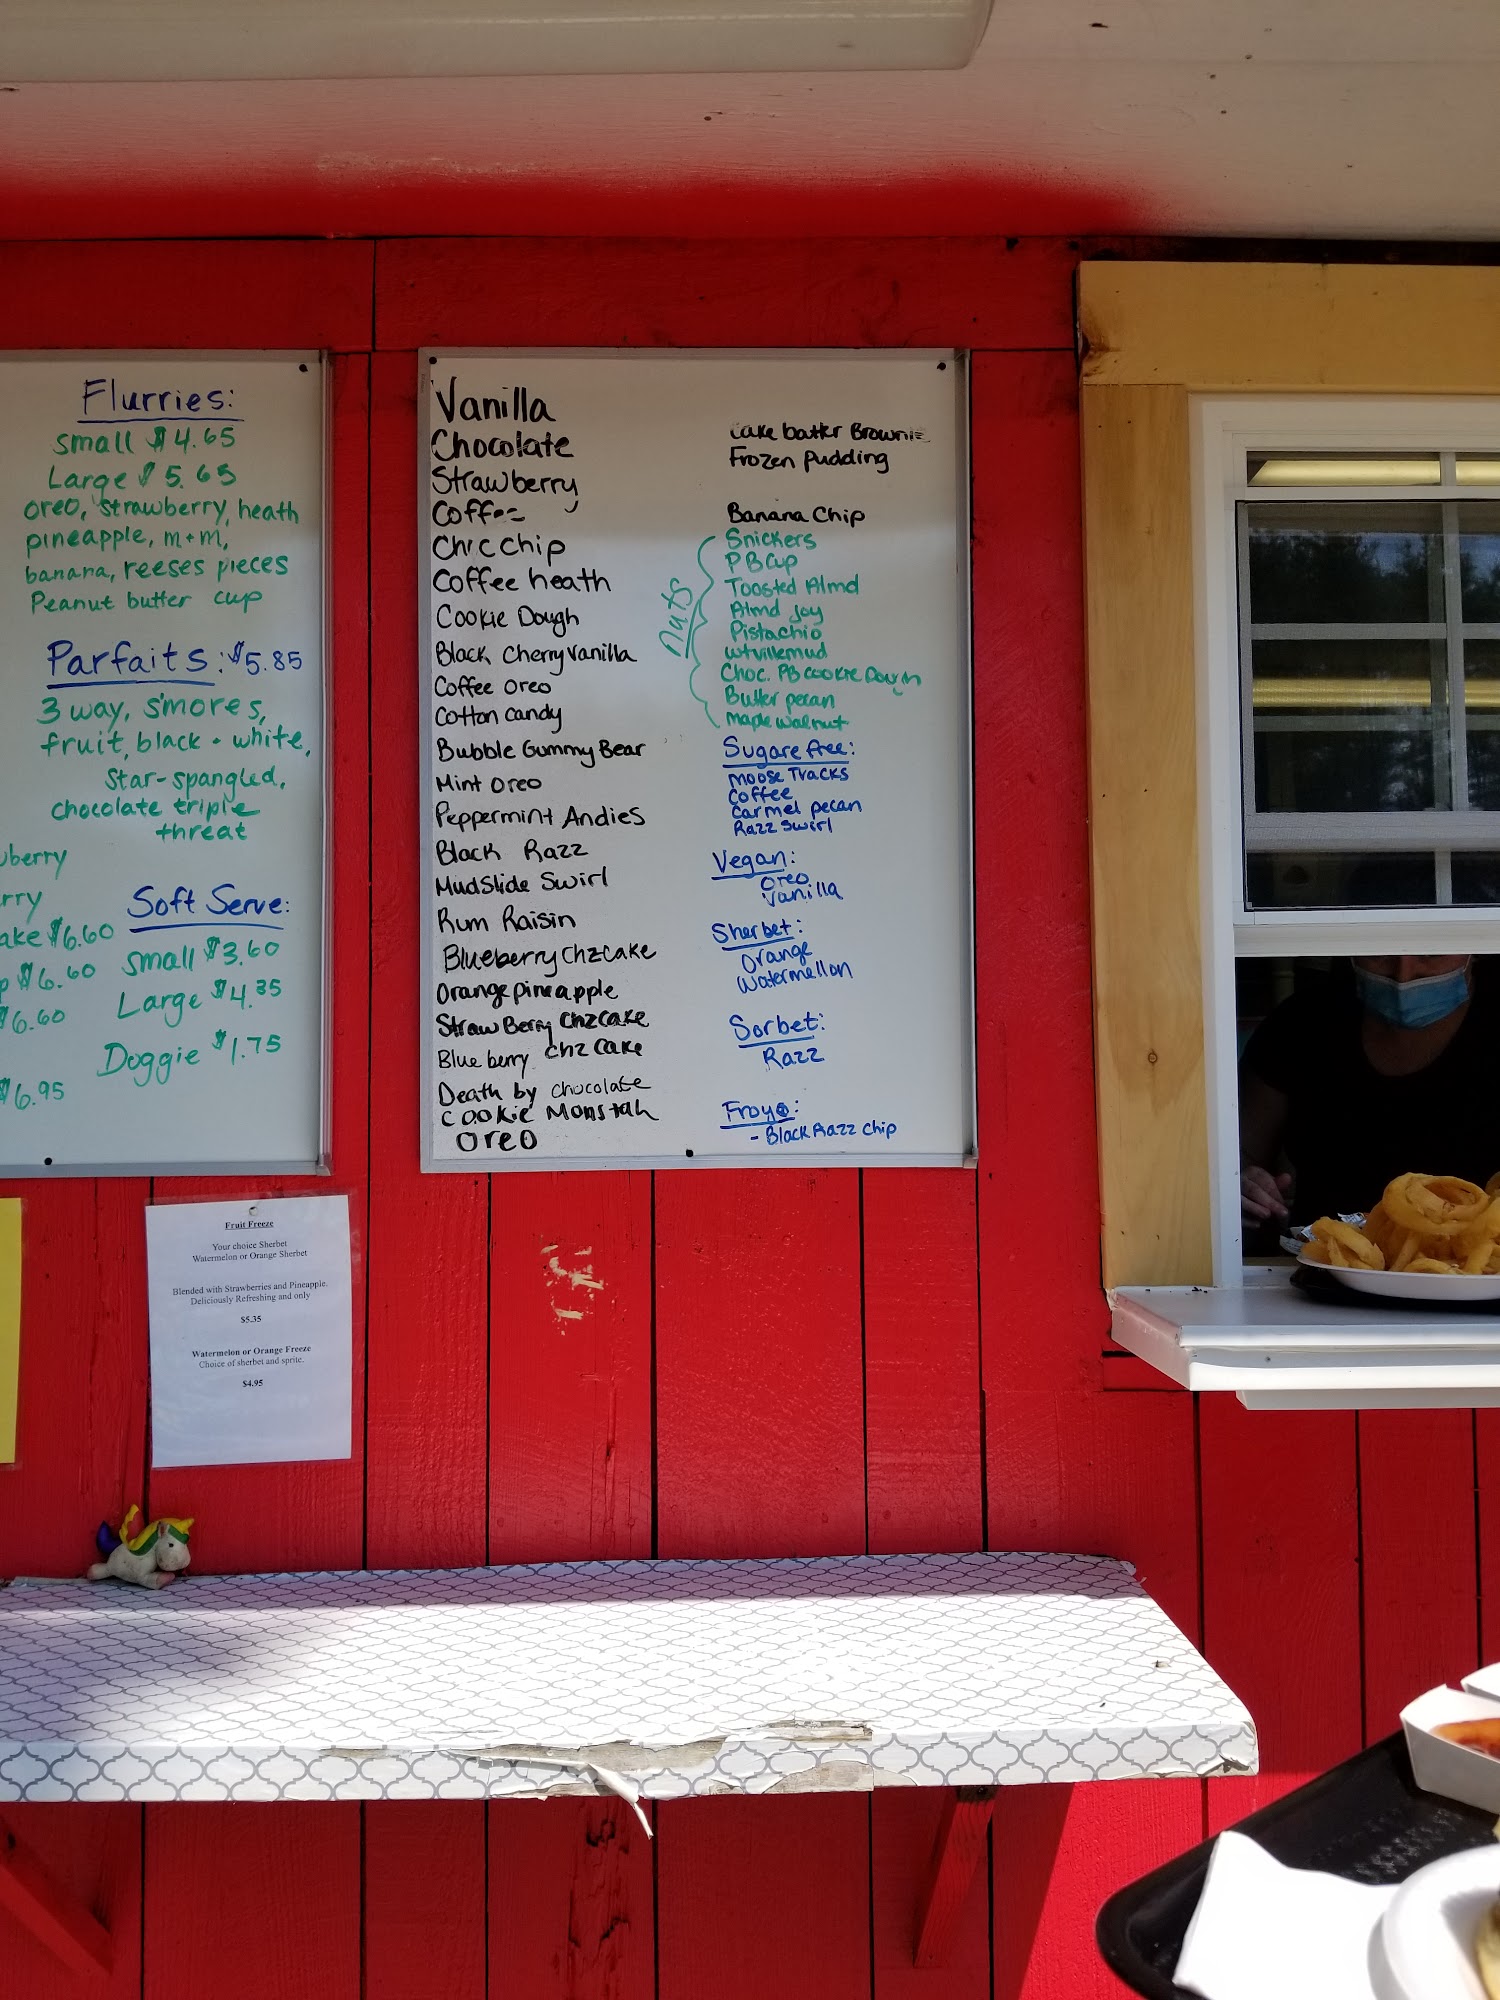 Flurries:
small $4.65
Large $5.65
oreo, strawberry, heath
pineapple, m+m,
banana, reeses pieces
Peanut butter cup
Parfaits: $5.85
3 way, s'mores,
fruit, black + white,
star-spangled,
chocolate triple
threat
berry
rry
ake $6.60
p $6.60
$6.60
$6.95
Soft Serve:
small $3.60
Large $4.35
Doggie $1.75
Vanilla
Chocolate
Strawberry
Coffee
Choc Chip
Coffee heath
Cookie Dough
Black Cherry vanilla
Coffee oreo
Cotton candy
Bubble Gummy Bear
Mint oreo
Peppermint Andies
Black Razz
Mudslide Swirl
Rum Raisin
Blueberry Chzcake
Orange pineapple
StrawBerry Chzcake
Blue berry chz cake
Death by chocolate
Cookie Monstah
oreo
Cake batter Brownie
Frozen Pudding
Banana Chip
nuts
Snickers
PB Cup
Toosted Almd
Almd Joy
Pistachio
wtvillemud
Choc. PB cookie Dough
Butter pecan
maple walnut
Sugare free:
moose Tracks
coffee
carmel pecan
Razz swirl
Vegan:
oreo
vanilla
Sherbet:
orange
watermellon
Sorbet:
Razz
Froyo:
- Black Razz chip
Fruit Freeze
Your choice Sherbet
Watermelon or Orange Sherbet
Blended with Strawberries and Pineapple.
Deliciously Refreshing and only
$5.35
Watermelon or Orange Freeze
Choice of sherbet and sprite.
$4.95